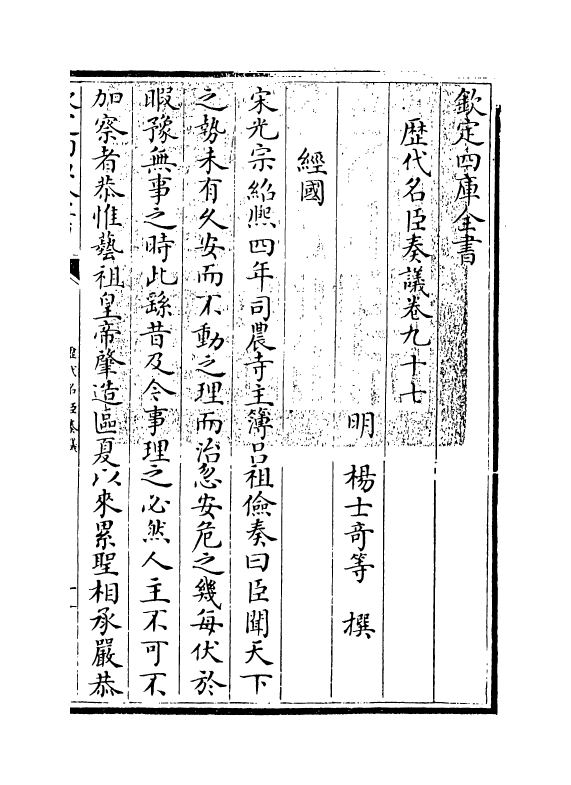 欽定四庫全書
歴代名臣奏議卷九十七
明　楊士竒等　撰
經國
宋光宗紹熙四年司農寺主簿吕祖儉奏曰臣聞天下
之勢未有久安而不動之理而治忽安危之幾每伏於
暇豫無事之時此繇昔及今事理之必然人主不可不
加察者恭惟藝祖皇帝肇造區夏以來累聖相承嚴恭
歴代名臣奏議